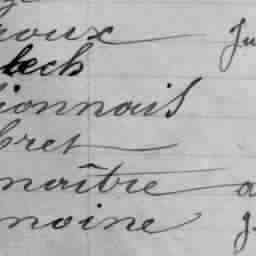 roux Ju
lech
ionnais
bret
maître a
moine J